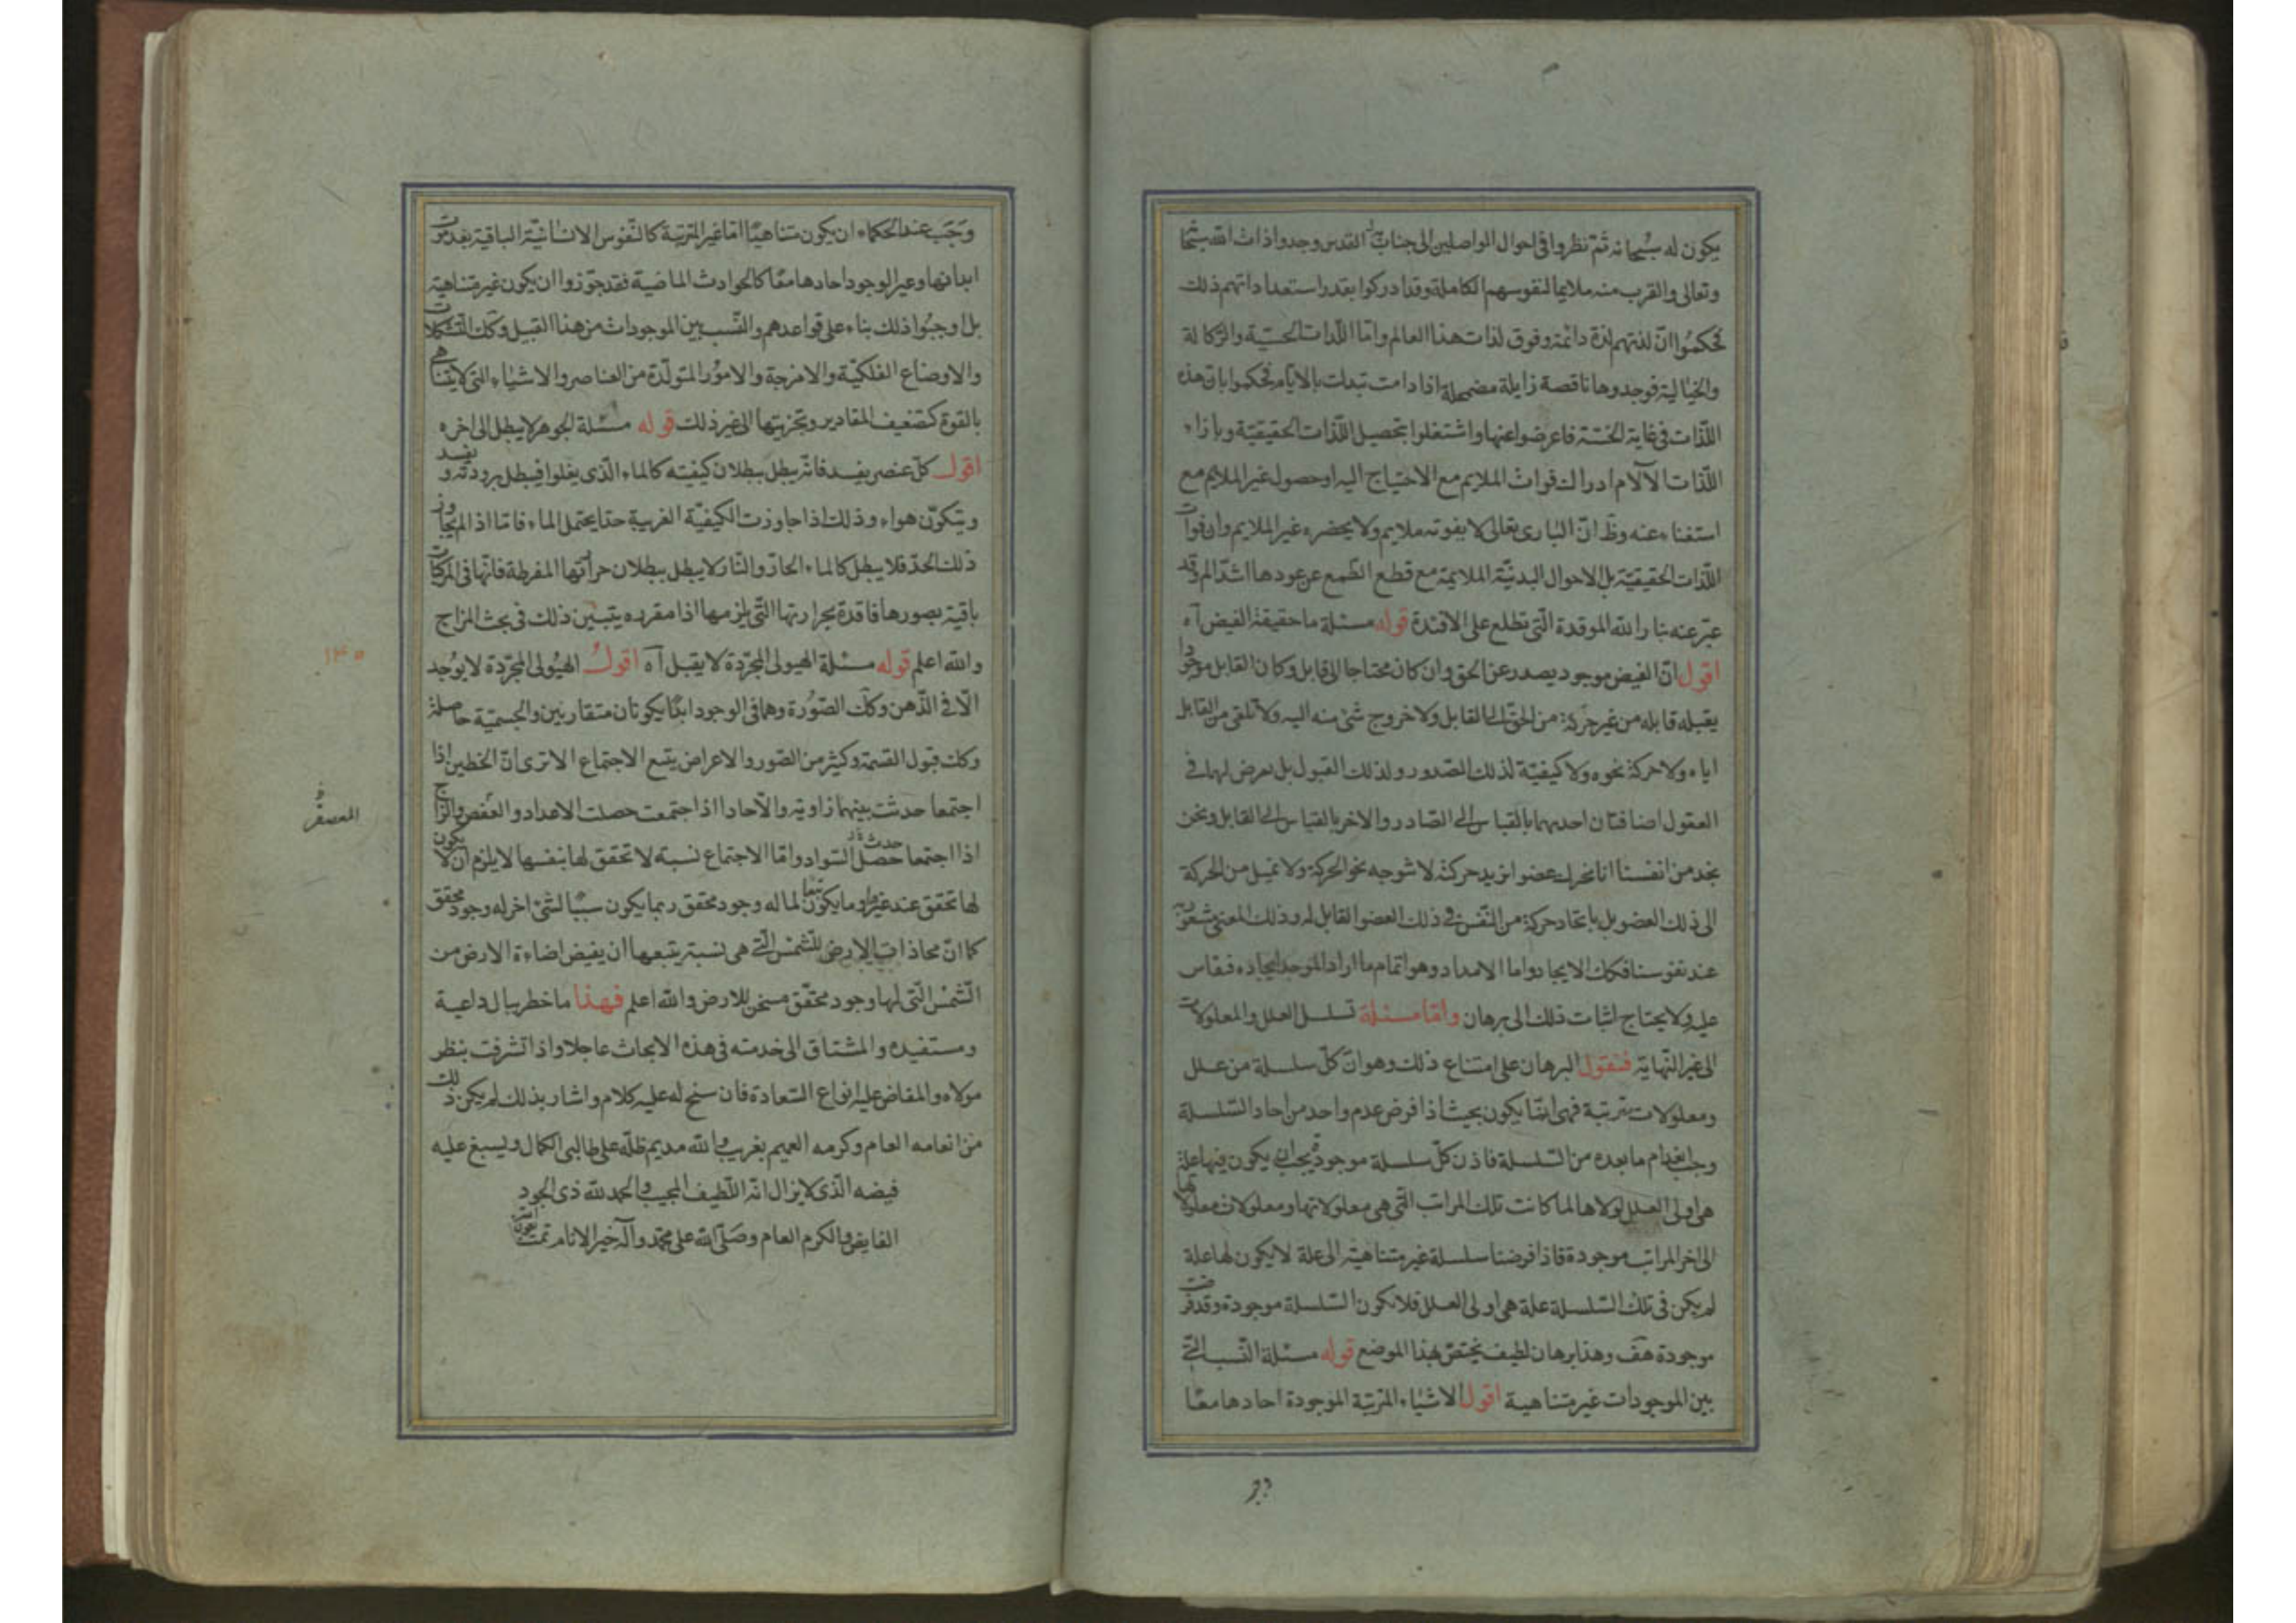 يكون له سبحانه ثم نظروا فى احوال الواصلين الى جناب القدس وجدوا ذات الله سبحا
وتعالى والقرب منه ملايما لنفوسهم الكاملة وقد ادركوا بقدر استعداداتهم ذلك
فحكموا ان لذتهم لذة دائمة وفوق لذات هذا العالم واما اللذات الحسية
والخيالية فوجدوها ناقصة زايلة مضمحلة اذا دامت تبدلت بالالام فحكموا بان هذه
اللذات فى غاية الخسة فاعرضوا عنها واشتغلوا بتحصيل اللذات الحقيقية وبازاء
اللذات الآلام ادراك فوات الملايم مع الاحتياج اليه او حصول غير الملايم مع
استغناء عنه وظ ان البارى تعالى لا يفوته ملايم ولا يحضره غير الملايم وان فوات
اللذات الحقيقية بل الاحوال البدنية الملايمة مع قطع الطمع عن عودها اشد الم وقد
عبر عنه بنار الله الموقدة التى تطلع على الافئدة قوله مسئلة ما حقيقة الفيض آه
اقول ان الفيض موجود يصدر عن الحق وان كان محتاجا الى قابل وكان القابل موجودا
يقبله قابله من غير حركة من الحق الى القابل ولا خروج شئ منه اليه ولا تلقى من القابل
اياه ولا حركة نحوه ولا كيفية لذلك الصدور ولذلك القبول بل يعرض لهما فى
العقول اضافتان احديهما بالقياس الى الصادر والاخر بالقياس الى القابل ونحن
نجد من انفسنا انا نحرك عضوا نريد حركته لا بتوجه نحو الحركة ولا بميل من الحركة
الى ذلك العضو بل بايجاد حركة من النفس فى ذلك العضو القابل له وذلك المعنى مشعور به
عند نفوسنا فكك الايجاد واما الامداد وهو اتمام ما اراد الموجد ايجاده فيقاس
عليه ولا يحتاج اثبات ذلك الى برهان واما مسئلة تسلسل العلل والمعلولات
الى غير النهاية فنقول البرهان على امتناع ذلك وهو ان كل سلسلة من علل
ومعلولات مترتبة فهى انما يكون بحيث اذا فرض عدم واحد من احاد السلسلة
وجب انعدام ما بعده من السلسلة فاذن كل سلسلة موجودة يجب ان يكون فيها علة
هى اولى العلل لولاها لما كانت تلك المراتب التى هى معلولاتها ومعلولات معلولاتها
الى اخر المراتب موجودة فاذا فرضنا سلسلة غير متناهية الى علة لا يكون لها علة
لم يكن فى تلك السلسلة علة هى اولى العلل فلا يكون السلسلة موجودة وقد فرضت
موجودة هف وهذا برهان لطيف يختص بهذا الموضع قوله مسئلة النسب التى
بين الموجودات غير متناهية اقول الاشياء المترتبة الموجودة احادها معا
وجب عند الحكماء ان يكون متناهيا اما غير المترتبة كالنفوس الانسانية الباقية بعد موت
ابدانها وغير الموجود احادها معا كالحوادث الماضية فقد جوزوا ان يكون غير متناهية
بل اوجبوا ذلك بناء على قواعدهم والنسب بين الموجودات من هذا القبيل وكك التشكلات
والاوضاع الفلكية والامزجة والامور المتولدة من العناصر والاشياء التى لا يتناهى
بالقوة كتضعيف المقادير وتجزيتها الى غير ذلك قوله مسئلة الجوهر لا يبطل الى اخره
اقول كل عنصر يفسد فانه يبطل ببطلان كيفيته كالماء الذى يغلوا فيبطل برودته ويفسد
ويتكون هواء وذلك اذا جاوزت الكيفية الغريبة حدا يحتمل الماء فاما اذا لم يجاوز
ذلك الحد فلا يبطل كالماء الحار والنار لا يبطل ببطلان حرارتها المفرطة فانها فى المركبات
باقية بصورها فاقدة بحرارتها التى يلزمها اذا مفرده يتبين ذلك فى بحث المزاج
والله اعلم قوله مسئلة الهيولى المجردة لا يقبل آه اقول الهيولى المجردة لا يوجد
الا فى الذهن وكك الصورة وهما فى الوجود ابدا يكونان متقارنين والجسمية حاصلة
وكك قبول القسمة وكثير من الصور والاعراض يتبع الاجتماع الا ترى ان الخطين اذا
اجتمعا حدثت بينهما زاوية والآحاد اذا اجتمعت حصلت الاعداد والعفص والزاج
اذا اجتمعا حصل حدث السواد واما الاجتماع نسبة لا تحقق لها بنفسها لا يلزم ان لا يكون
لها تحقق عند غيرها وما يكون تبعا لما له وجود محقق ربما يكون سببا لشئ اخر له وجود محقق
كما ان محاذات الارض للشمس التى هى نسبة يتبعها ان يفيض اضاءة الارض من
الشمس التى لها وجود محقق مسخن للارض والله اعلم فهذا ما خطر ببال داعية
ومستفيده والمشتاق الى خدمته فى هذه الابحاث عاجلا واذا تشرفت بنظر
مولاه والمفاض عليه انواع السعادة فان سنح له عليه كلام واشار بذلك لم يكن ذلك
من انعامه العام وكرمه العميم بغريب والله مديم ظله على طالبى الكمال ويسبغ عليه
فيضه الذى لا يزال انه اللطيف المجيب والحمد لله ذى الجود
الفايض والكرم العام وصلى الله على محمد وآله خير الانام تمت
١٣٥